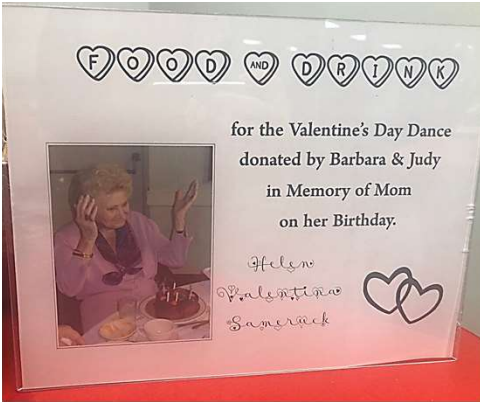 FOOD AND DRINK
for the Valentine's Day Dance
donated by Barbara & Judy
in Memory of Mom
on her Birthday.
Helen
Valentina
Sameruck